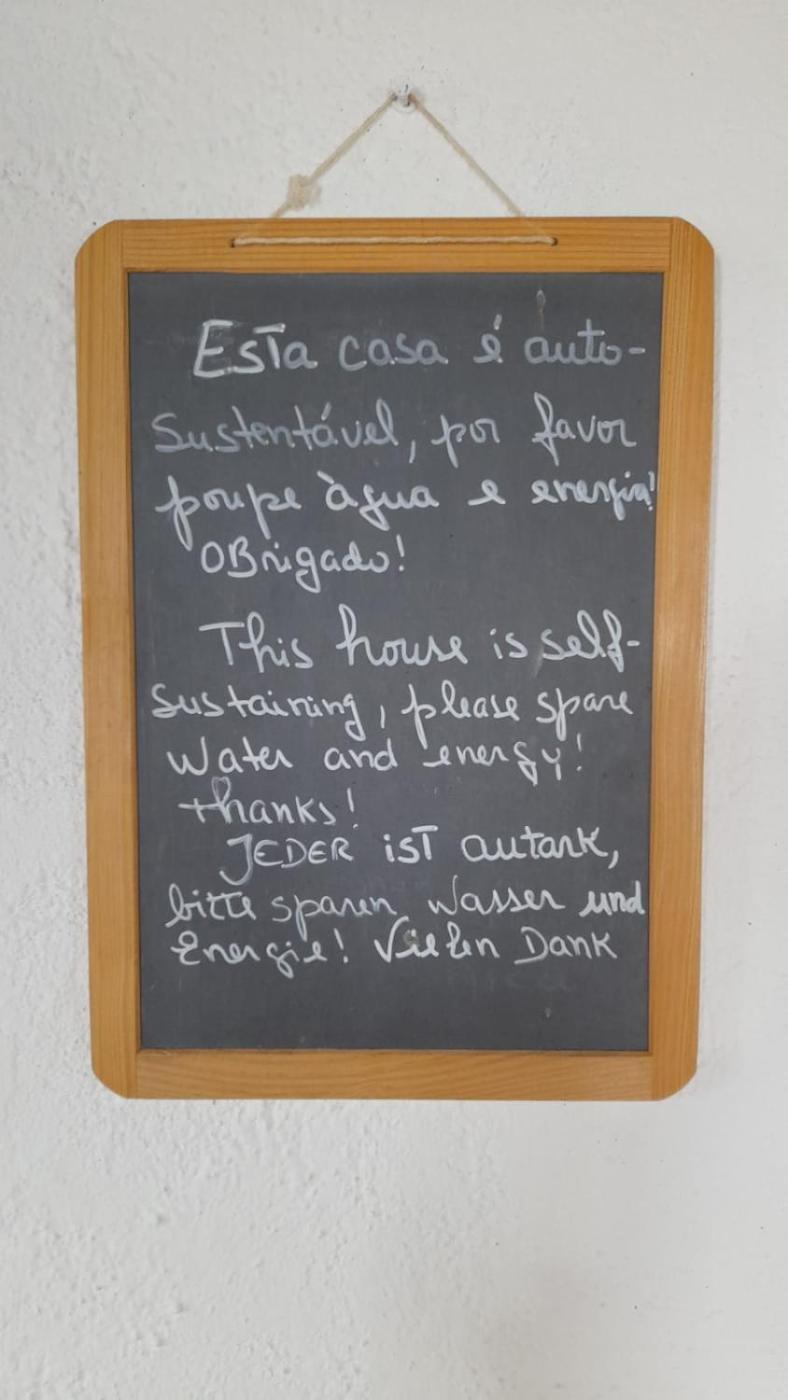 Esta casa é auto-
sustentável, por favor
poupe àgua e energia!
OBrigado!
This house is self-
sustaining, please spare
Water and energy!
thanks!
JEDER isT autark,
bitte sparen Wasser und
Energie! Vielen Dank